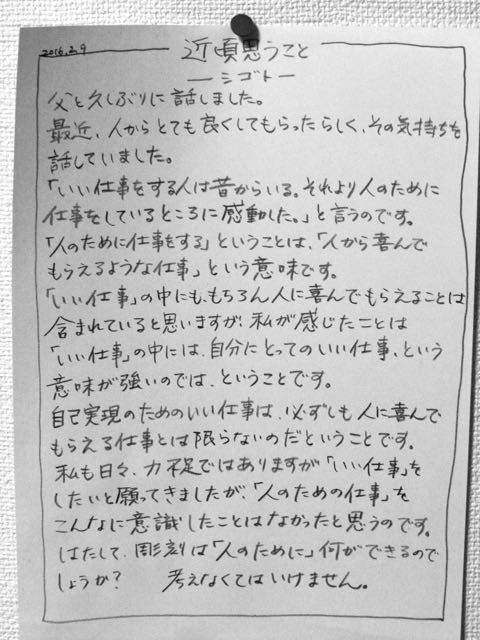 2016.2.9
近頃思うこと
— シゴト —
父と久しぶりに話しました。
最近、人からとても良くしてもらったらしく、その気持ちを
話していました。
「いい仕事をする人は昔からいる。それより人のために
仕事をしているところに感動した。」と言うのです。
「人のために仕事をする」ということは、「人から喜んで
もらえるような仕事」という意味です。
「いい仕事」の中にも、もちろん人に喜んでもらえることは
含まれていると思いますが、私が感じたことは
「いい仕事」の中には、自分にとってのいい仕事、という
意味が強いのでは、ということです。
自己実現のためのいい仕事は、必ずしも人に喜んで
もらえる仕事とは限らないのだということです。
私も日々、力不足ではありますが「いい仕事」を
したいと願ってきましたが、「人のための仕事」を
こんなに意識したことはなかったと思うのです。
はたして、彫刻は「人のために」何ができるので
しょうか？　考えなくてはいけません。